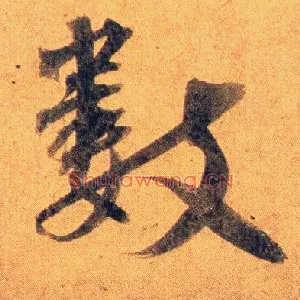 數
Shufawang.CN